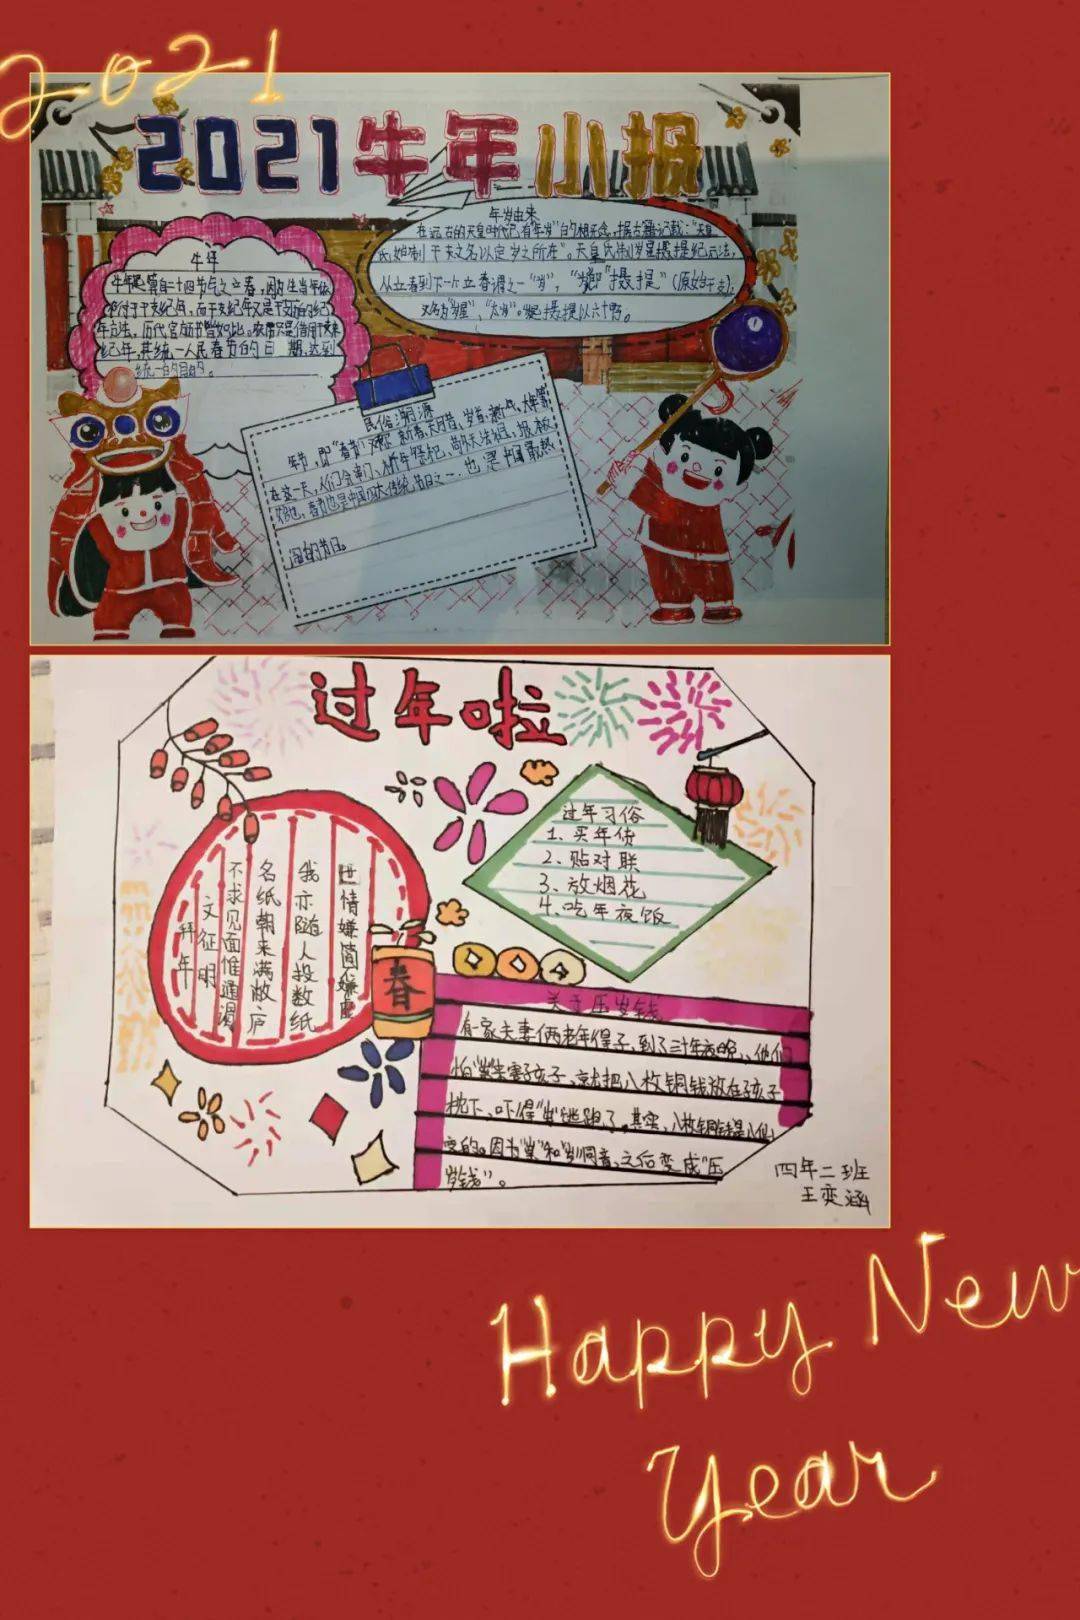 2021
2021牛年小报
年岁由来
在远古的天皇时代已有"年岁"的相关概念,据古籍记载:"天皇
氏始制干支之名以定岁之所在"。天皇氏制岁星摄提纪元法,
从立春到下一个立春谓之一"岁",
"摄提"(原始干支);
又名为"岁星"、"太岁"。
摄提以六十为。
牛年
牛年是算自二十四节气之立春,因为生肖年依
附于干支纪年,而干支纪年又是干支历的纪
年方法,历代官方历书皆如此。
纪年,其统一人民春节的日期,达到
统一的目的。
民俗溯源
年节,即"春节"
新春、
岁首、新
在这一天,人们会
祭祀、
也是中国最热
春节也是中国四大传统节日之一,
闹的节日。
过年啦
过年习俗
1、买年货
2、贴对联
3、放烟花
4、吃年夜饭
世情嫌简不嫌虚
我亦随人投数纸
名纸朝来满敝庐
不求见面惟通谒
文征明
拜年
春
关于压岁钱
有家夫妻俩老年得子,到了三十年夜晚,他们
怕"祟"来害子孩子,就把八枚铜钱放在孩子
枕下,吓得"祟"逃跑了。其实,八枚铜钱是八仙
变的。因为"祟"和"岁"同音,之后变成"压
岁钱"。
四年二班
王奕涵
Happy New
Year